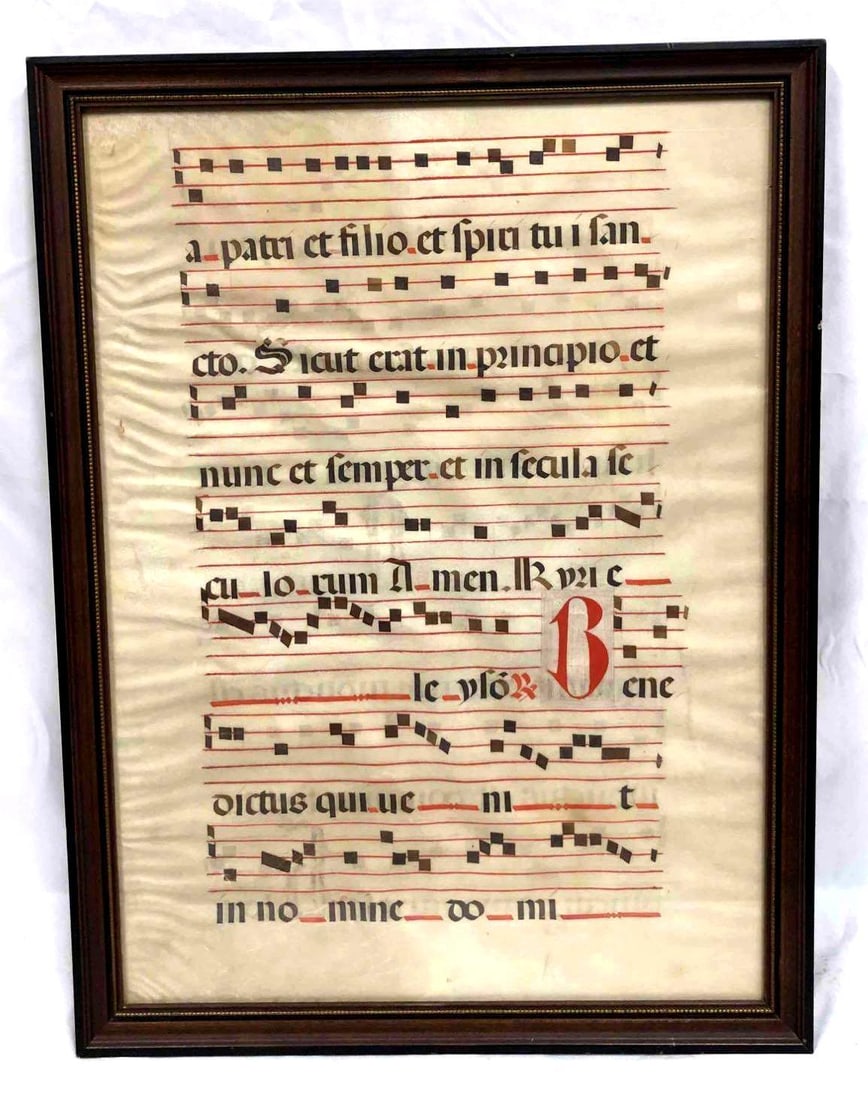 a patri et filio et spiri tu i san
cto. Sicut erat in principio et
nunc et semper et in secula se
cu lo rum A men. Kyri e
le ysō ℟ Bene
dictus qui ue ni t
in no mine do mi